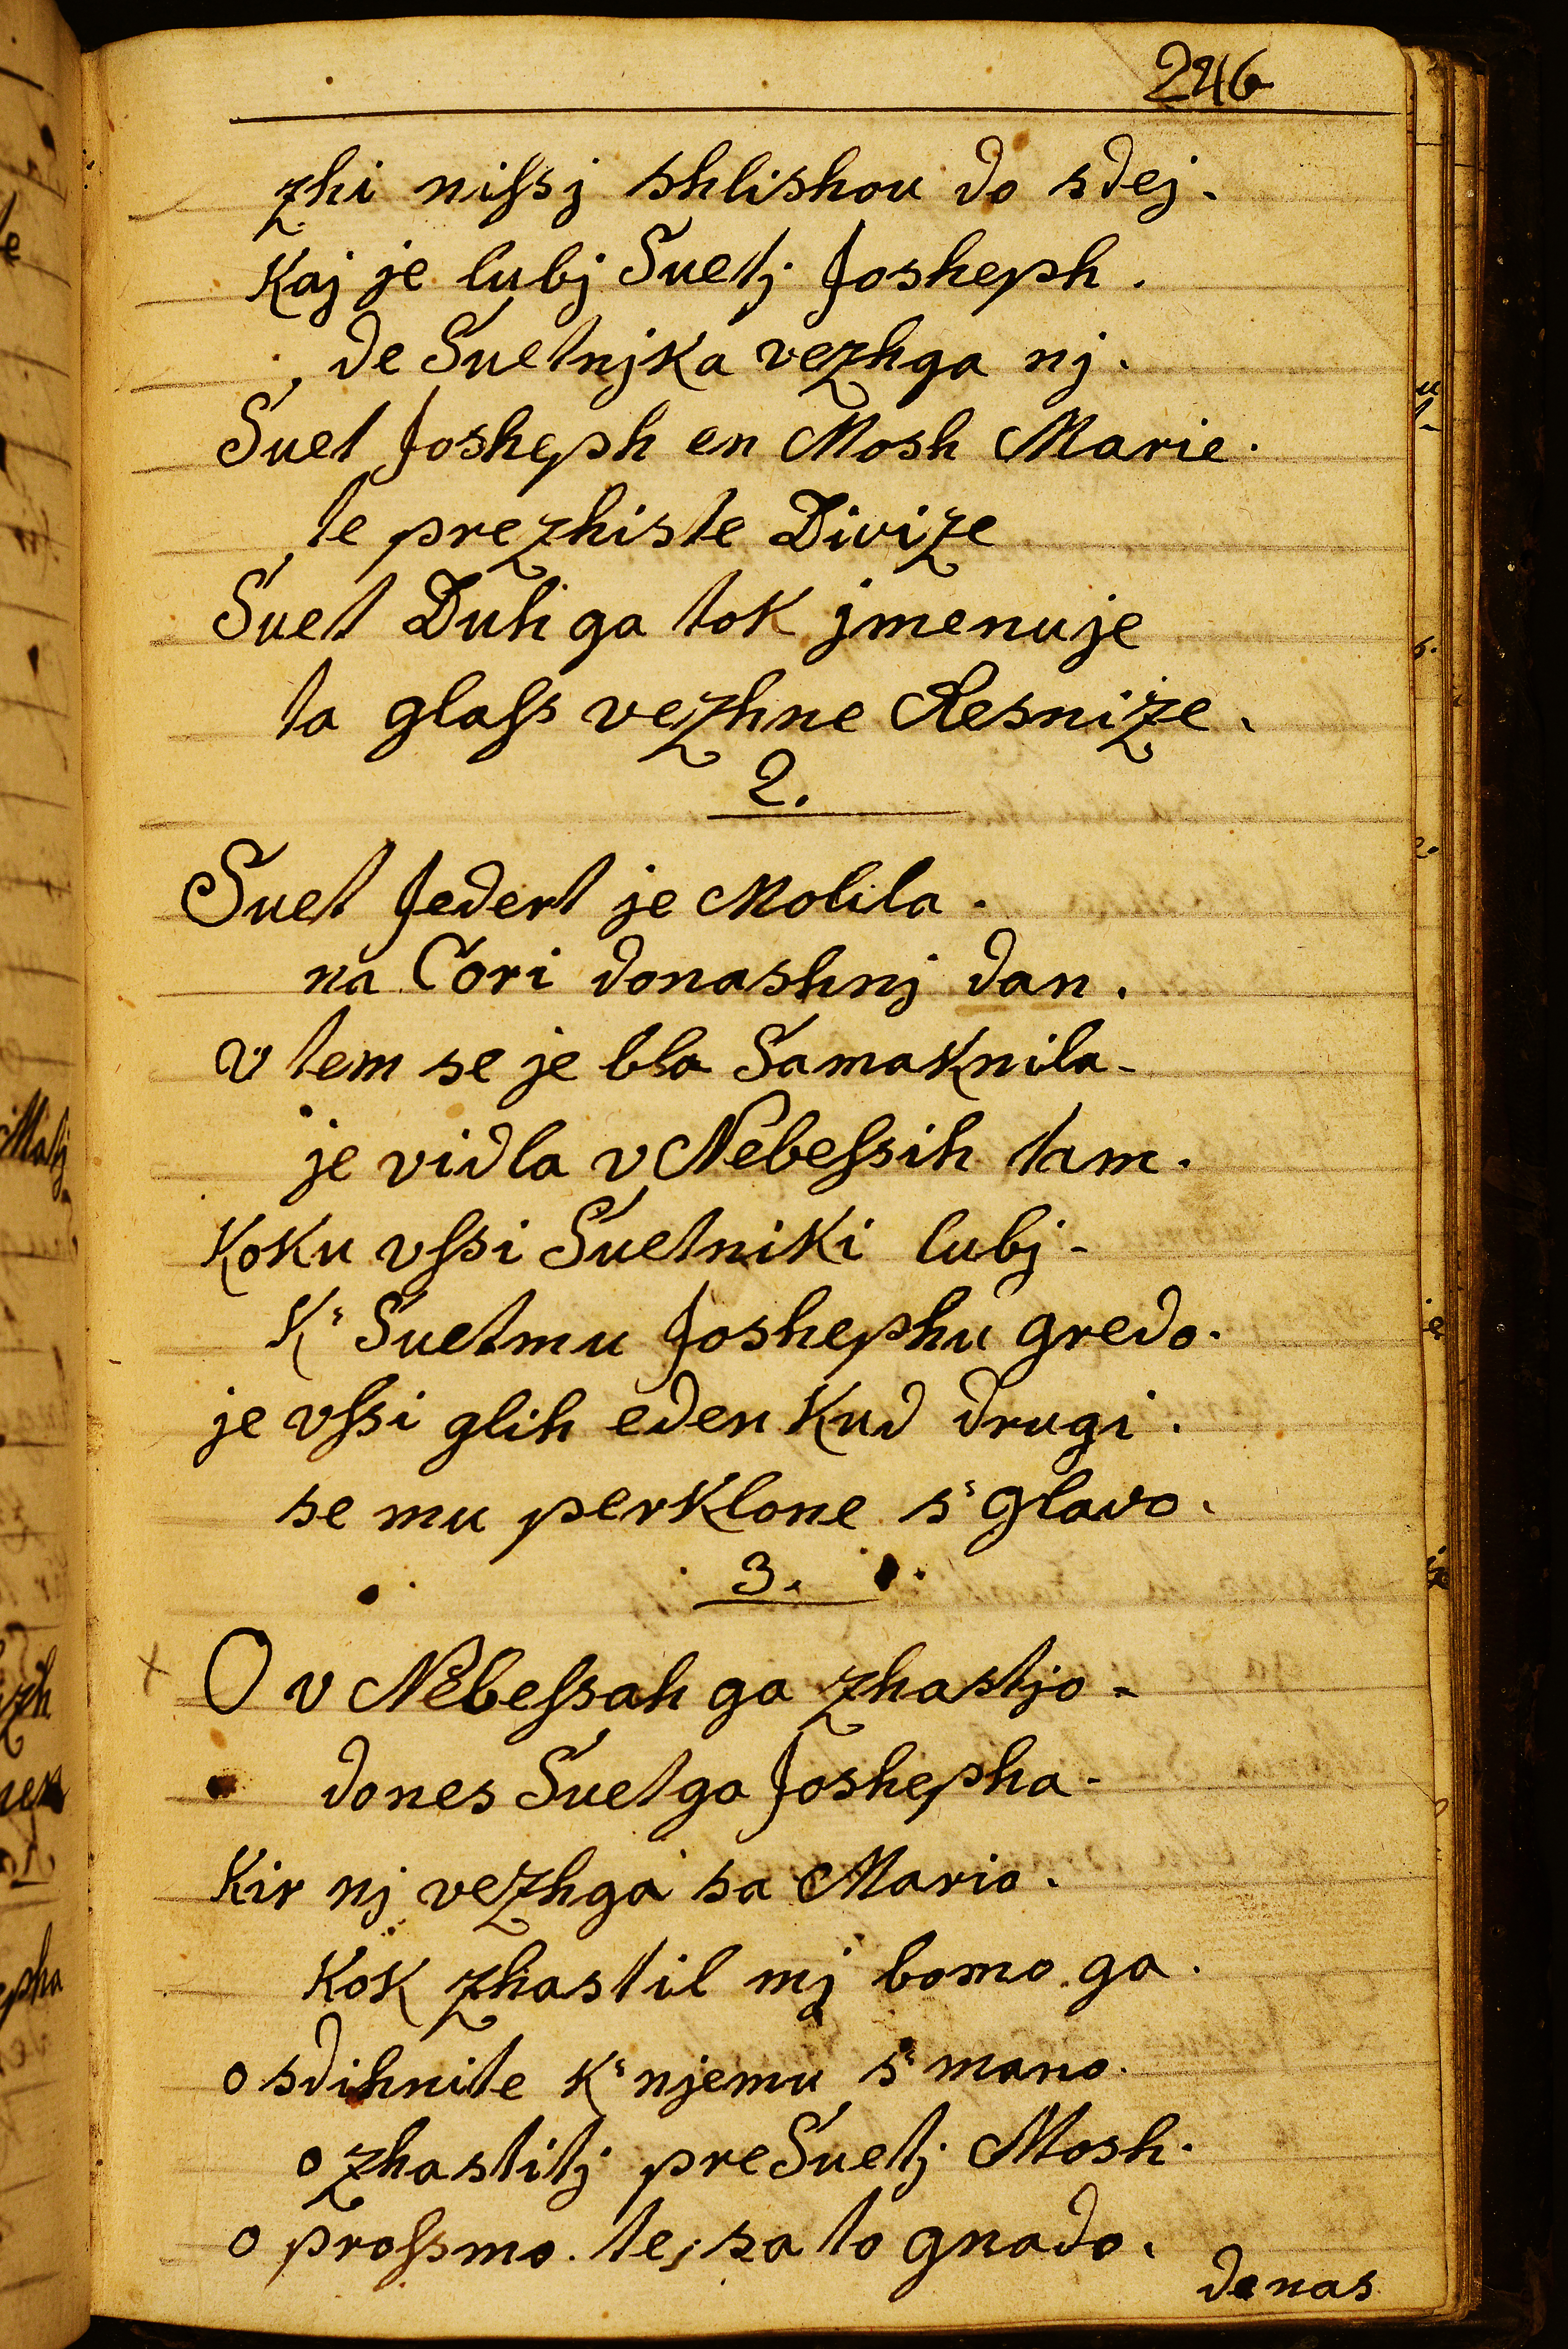 246
zhi niſsj shlishou do sdej.
Kaj je lubj Suetj Josheph.
de Suetnjka vezhga nj.
Suet Josheph en Mosh Marie.
te prezhiste Divize
Suet Duh ga tok jmenuje
ta glaſs vezhne Resnize.
2.
Suet Jedert je Molila.
na Cori donashnj dan.
v tem se je bla Samaknila.
je vidla v Nebeſsih tam.
Koku vſsi Suetniki lubj.
K' Suetmu Joshephu gredo.
je vſsi glih eden Kud drugi.
se mu perklone s' glavo.
3.
O v Nebeſsah ga zhastjo.
dones Suetga Joshepha.
Kir nj vezhga sa Mario.
Kok zhastil mj bomo ga.
o sdihnite k' njemu s' mano.
o zhastitj preSuetj Mosh.
o proſsmo te, sa to gnado.
de nas